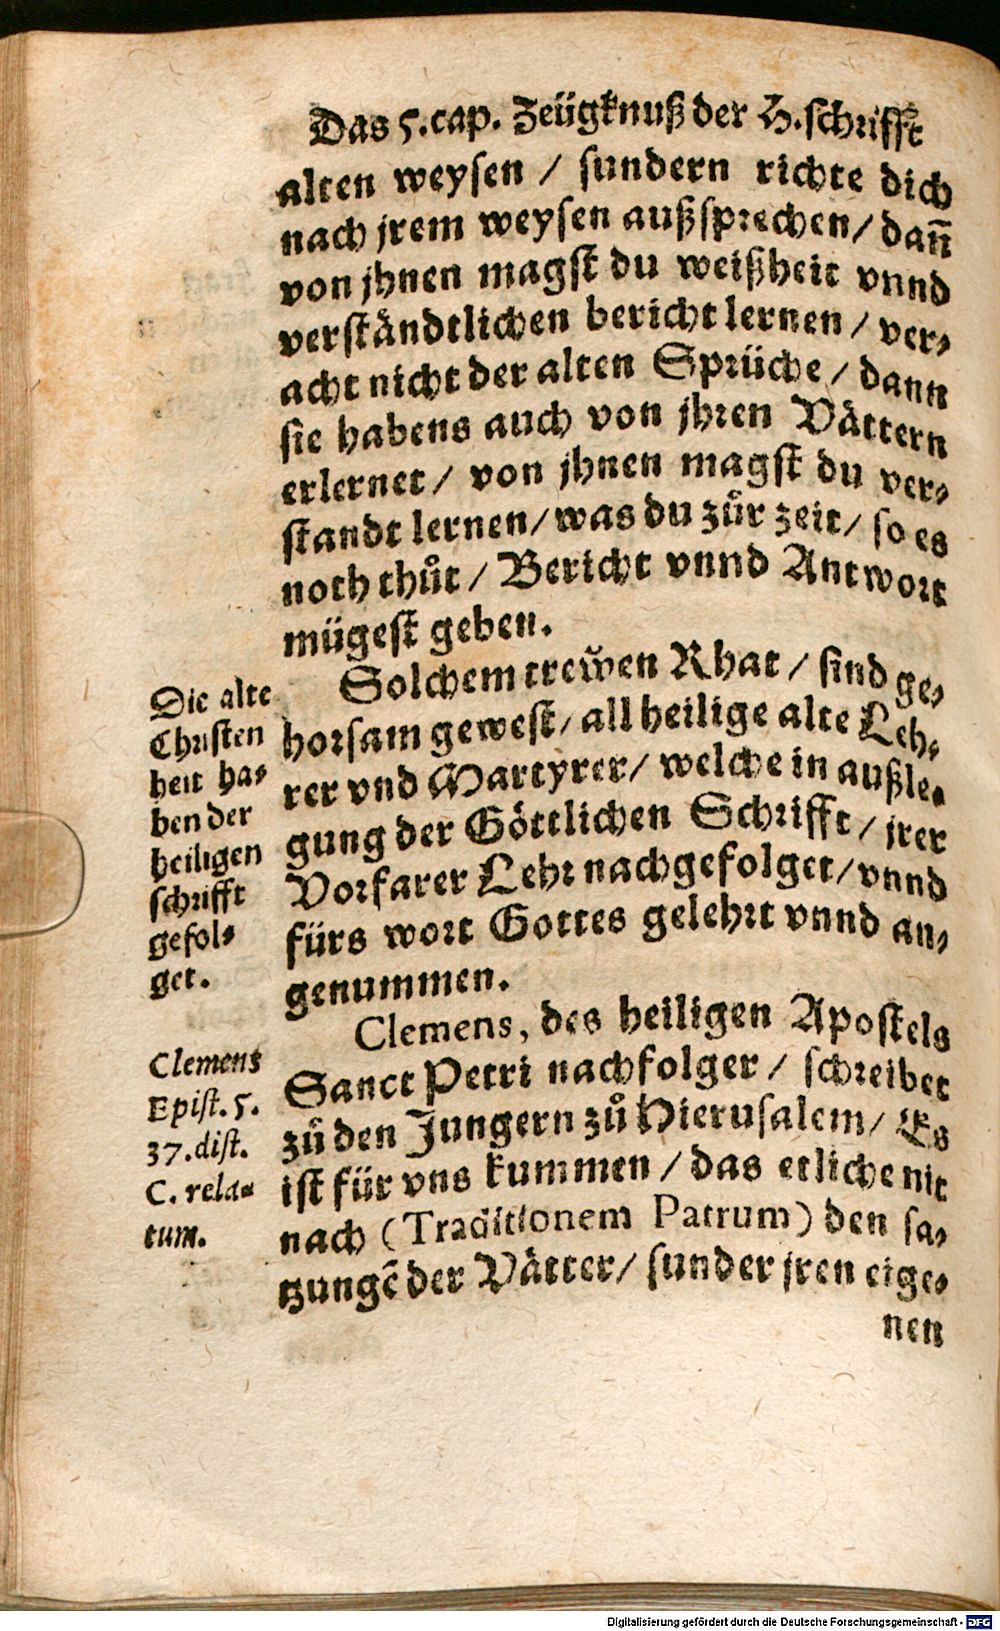 Das 5.cap. Zeügknuß der H.schrifft
alten weysen / sundern richte dich
nach jrem weysen außsprechen / dañ
von jhnen magst du weißheit vnnd
verständtlichen bericht lernen / ver⸗
acht nicht der alten Sprüche / dann
sie habens auch von jhren Vättern
erlernet / von jhnen magst du ver⸗
standt lernen / was du zůr zeit / so es
noth thůt / Bericht vnnd Antwort
mügest geben.
Solchem trewen Rhat / sind ge⸗
horsam gewest / all heilige alte Leh⸗
rer vnd Martyrer / welche in außle⸗
gung der Göttlichen Schrifft / jrer
Vorfarer Lehr nachgefolget / vnnd
fürs wort Gottes gelehrt vnnd an⸗
genummen.
Die alte
Christen
heit ha⸗
ben der
heiligen
schrifft
gefol⸗
get.
Clemens, des heiligen Apostels
Sanct Petri nachfolger / schreibet
zů den Jungern zů Hierusalem / Es
ist für vns kummen / das etliche nit
nach (Traditionem Patrum) den sa⸗
tzungē der Vätter / sunder jren eige⸗
nen
Clemens
Epist. 5.
37. dist.
C. rela⸗
tum.
Digitalisierung gefördert durch die Deutsche Forschungsgemeinschaft - DFG